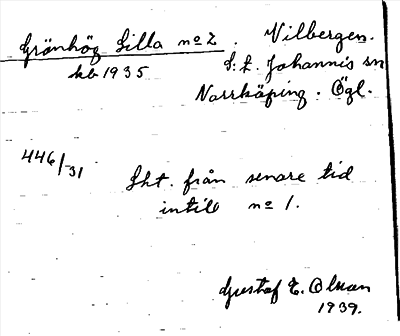 Grönhög Lilla no 2. Vilbergen.
kb 1935 S:t Johannis sn
Norrköping. Ögl.
446/31 Lht. från senare tid
intill no 1.
Gustaf E. Olson
1939.